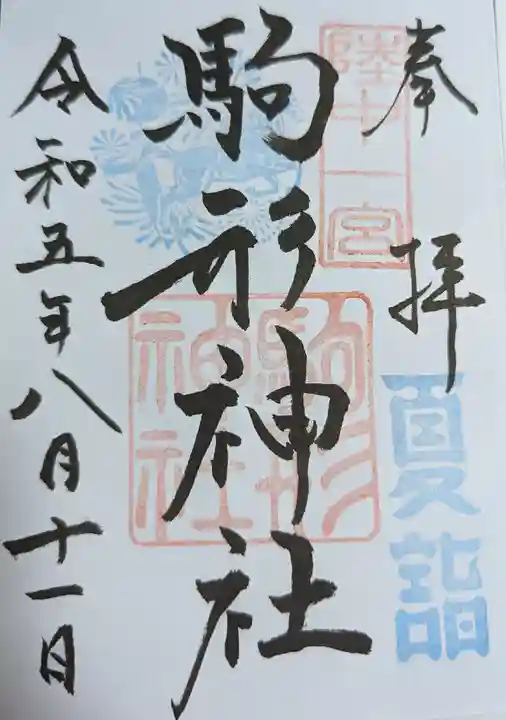 奉拝
陸中一宮
夏詣
駒形神社
駒形
神社
令和五年八月十一日